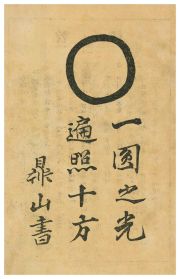 一圓之光
遍照十方
鼎山書